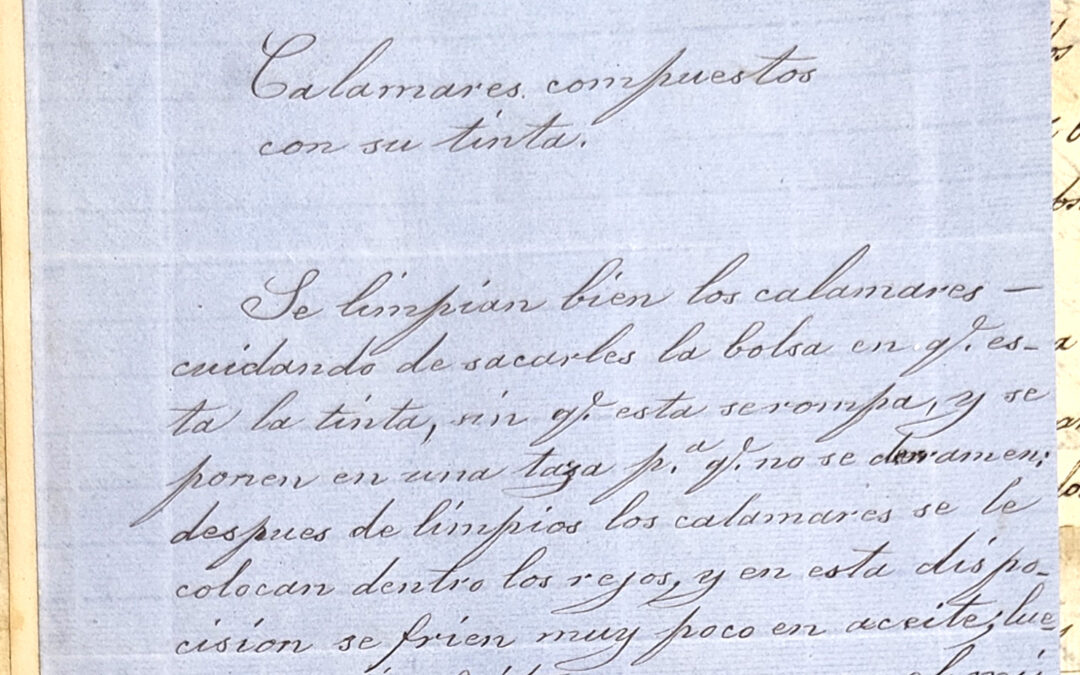 Calamares. compuestos
con su tinta.
Se limpian bien los calamares —
cuidando de sacarles la bolsa en q.e es-
ta la tinta, sin q.e esta serompa, y se
ponen en una taza p.a q.e no se derramen;
despues de limpios los calamares se le
colocan dentro los rejos, y en esta dispo-
cision se frien muy poco en aceite; lue-